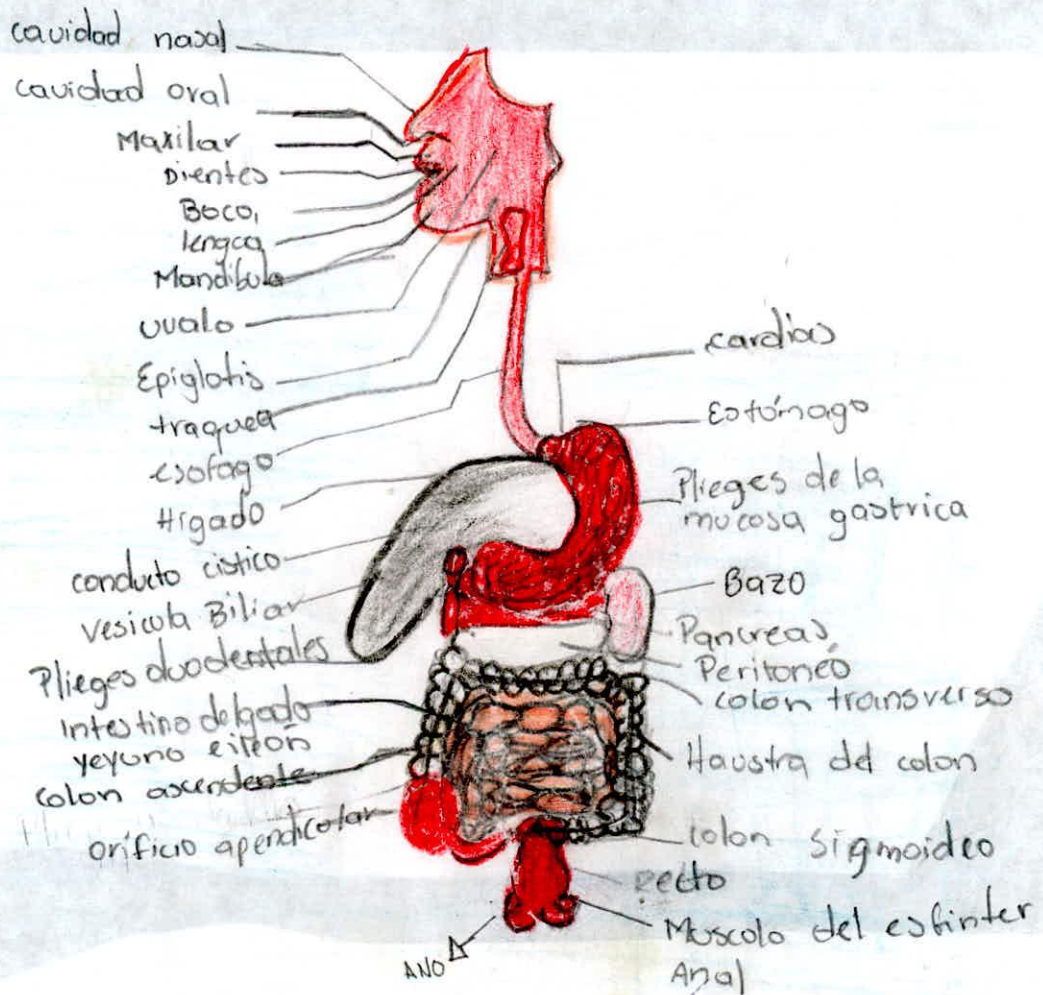 cavidad nasal
cavidad oral
Maxilar
Dientes
Boca,
lengca
Mandibula
uvalo
Epiglotis
traquea
esofago
Hígado
conducto cistico
vesicula Biliar
Plieges duodentales
Intestino delgado
yeyuno eileon
colon ascendente
orificio apendicular
ANO
cardias
Estómago
Plieges de la
mucosa gastrica
Bazo
Pancreas
Peritoneo
colon transverso
Haustra del colon
colon sigmoideo
recto
Musculo del esfinter
Anal